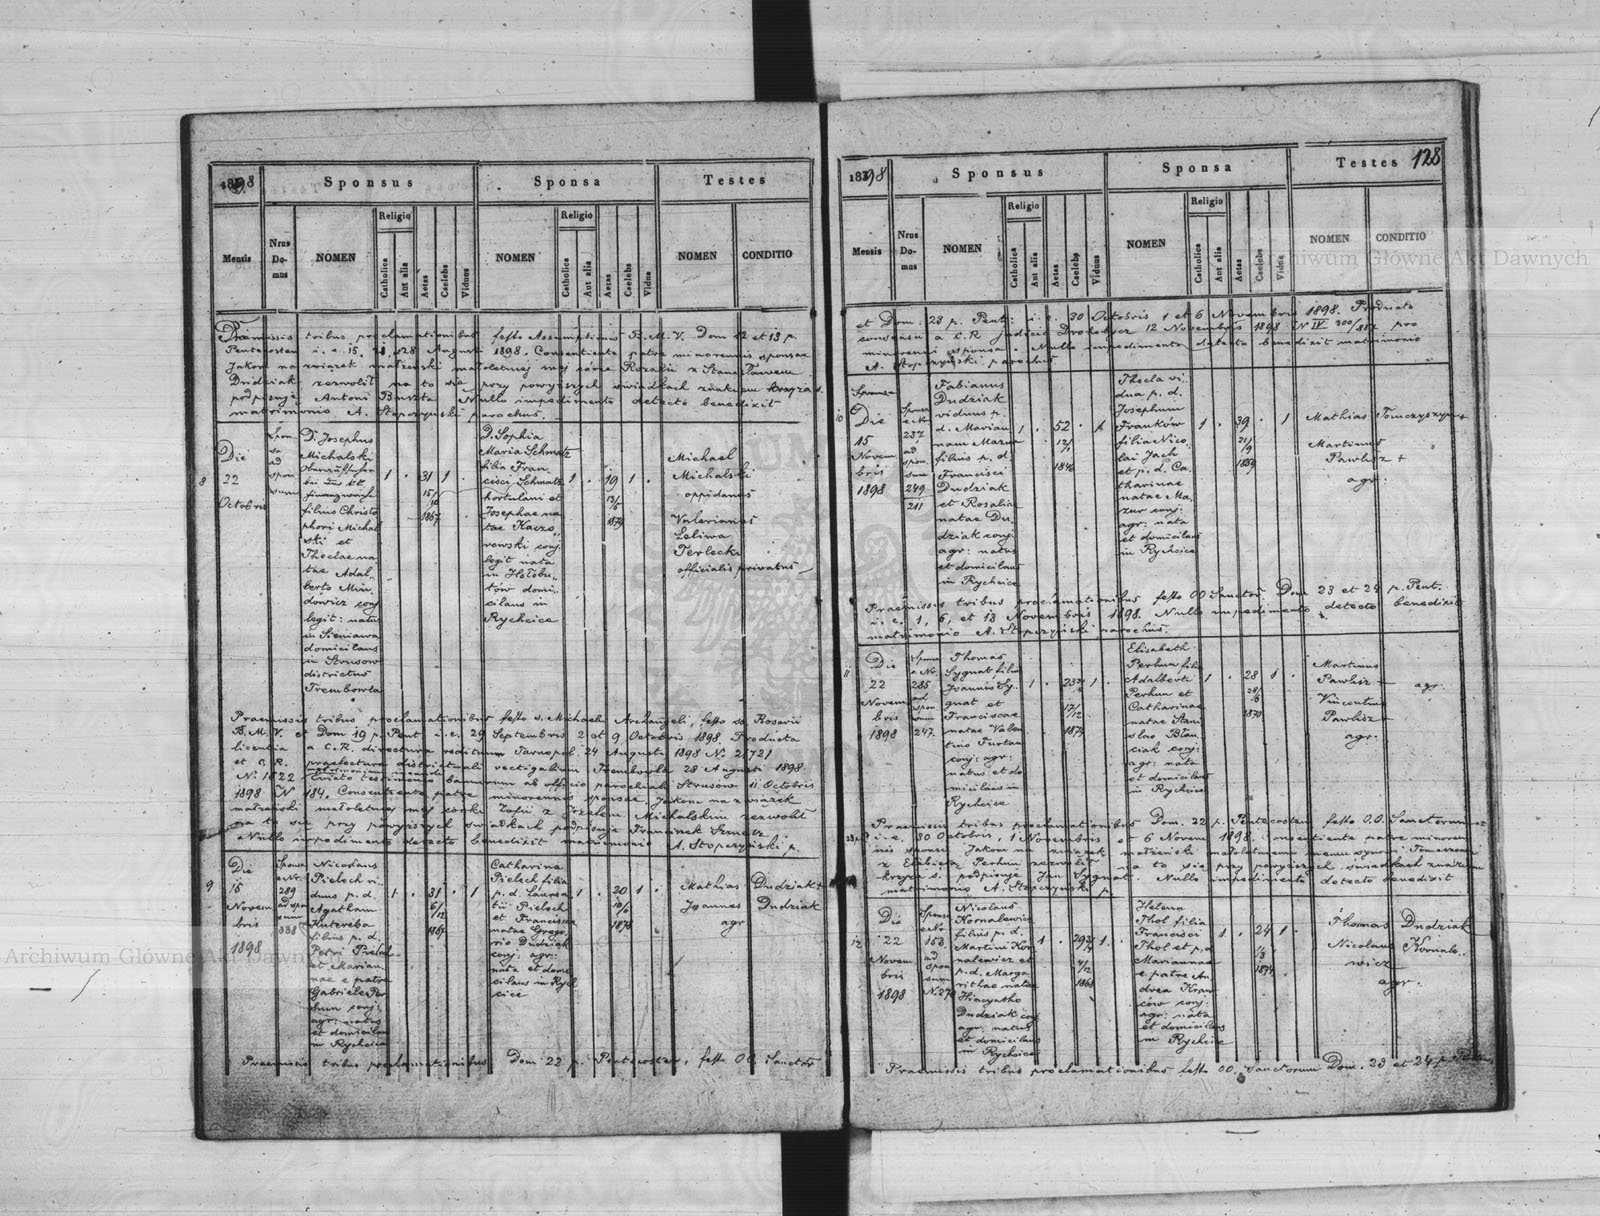 1898
Sponsus
Sponsa
Testes
Mensis
Nrus Do-mus
NOMEN
Religio
Catholica
Aut alia
Aetas
Caelebs
Viduus
NOMEN
Religio
Catholica
Aut alia
Aetas
Caelebs
Vidua
NOMEN
CONDITIO
Praemissis tribus proclamationibus festo Assumptionis B. M. V. Dom 12 et 13 p.
Pentecosten i. e. 15, 21, 28 Augusti 1898. Consentiente patre minorennis sponsae
Jakom na związek małżeński małoletniej mej córce Rozalii z Stanisławem
Dudziak zezwolił na to się przy powyższych świadkach znakiem krzyża s.
podpisuję Antoni Buszta Nullo impedimento detecto benedixit
matrimonio A. Stopczyński parochus.
8
Die
22
Octobris
Spon
sa
ad
spon
sum
D. Josephus
Michalski
filius Christo
phori Michal
ski et
Theclae na
tae Adal
berto Mun
dowicz conj
legit: natus
in Sieniawa
domicilans
in Strusow
districtus
Trembowla
1 . 31 1 .
15/
1867
D. Sophia
Maria Schmatz
filia Fran
cisci Schmatz
hortulani et
Josephae na
tae Kaczo
rowski conj.
legit nata
in Hołobu
tów domi
cilans in
Rychcice
1 . 19 1 .
13/5
1879
Michael
Michalski
oppidanus
Valerianus
Loliwa
Terlecki
officialis privatus
Praemissis tribus proclamationibus festo s. Michaelis Archangeli, festo ss. Rosarii
B. M. V. et Dom 19 p. Pent i. e. 29 Septembris 2 et 9 Octobris 1898. Producta
licentia a C. R. directura redituum Tarnopol 24 Augusti 1898 No. 21721
et C. R. praefectura districtuali vectigalium Trembowla 28 Augusti 1898
No. 1822 testimonio bannorum ab officio parochiali Strusow 11 Octobris
1898 N 184. Consentiente patre minorennis sponsae Jakom na związek
małżeński małoletniej mej córki Zofii z Józefem Michalskim zezwolił
na to się przy powyższych świadkach podpisuję Franciszek Szmatz
Nullo impedimento detecto benedixit matrimonio A. Stopczyński p.
9
Die
15
Novem
bris
1898
Sponsa
e Nr.
289
ad spon
sum
338
Nicolaus
Pieloch vi
duus p. d.
Agatham
Kutereba
filius p. d.
Petri Pieloch
et Marian
nae e patre
Gabriele Per
hun conj:
agr: natus
et domicilans
in Rychcice
1 . 31 . 1
6/12
1867
Catharina
Pieloch filia
p. d. Lauren
tii Pieloch
et Franciscae
natae Grego
rio Dudziak
conj: agr:
nata et domi
cilans in Rych
cice
1 . 20 1 .
10/6
1878
Mathias Dudziak +
Joannes Dudziak
agr
Praemissis tribus proclamationibus Dom: 22 p. Pentecosten, festo OO. Sanctor
1898
Sponsus
Sponsa
Testes
128
Mensis
Nrus Do-mus
NOMEN
Religio
Catholica
Aut alia
Aetas
Caelebs
Viduus
NOMEN
Religio
Catholica
Aut alia
Aetas
Caelebs
Vidua
NOMEN
CONDITIO
et Dom: 23 p. Pent: i. e. 30 Octobris 1 et 6 Novembris 1898. Producto
consensu a C. R. judicio Drohobycz 12 Novembris 1898 N IV 300/98 pro
minorenni sponsa. Nullo impedimento detecto benedixit matrimonio
A. Stopczyński parochus.
10
Die
15
Novem
bris
1898
Sponsa
e Nr
237
ad
spon
sum
249
211
Fabianus
Dudziak
viduus p.
d. Marian
nam Mazur
filius p. d.
Francisci
Dudziak
et Rosaliae
natae Du
dziak conj
agr: natus
et domicilans
in Rychcice
1 . 52 . 1
12/1
1846
Thecla vi
dua p. d.
Josephum
Franków
filia Nico
lai Jach
et p. d. Ca
tharinae
natae Ma
zur conj:
agr: nata
et domicilans
in Rychcice
1 . 39 . 1
21/9
1859
Mathias Tomczyszyn +
Martinus
Pawlisz +
agr:
Praemissis tribus proclamationibus festo OO Sanctor Dom 23 et 24 p. Pent.
i. e. 1, 6, et 13 Novembris 1898. Nullo impedimento detecto benedixit
matrimonio A. Stopczyński parochus.
11
Die
22
Novem
bris
1898
Sponsa
e Nr.
285
ad
spon
sum
247.
Thomas
Sygnat filius
Joannis Sy
gnat et
Franciscae
natae Valen
tino Furtan
conj: agr:
natus et do
micilans in
Rychcice
1 . 23 1 .
17/12
1874
Elisabeth
Perhun filia
Adalberti
Perhun et
Catharinae
natae Stani
slao Błau
ciak conj:
agr: nata
et domicilans
in Rychcice
1 . 28 1 .
28/6
1870
Martinus
Pawlisz
agr.
Vincentius
Pawlisz
agr:
Praemissis tribus proclamationibus Dom. 22 p. Pentecosten festo O.O. Sanctorum
i. e. 30 Octobris, 1 Novembris 6 Novem 1898. Consentiente patre minoren
nis sponsi Jakom na związek małżeński małoletniemu memu synowi Tomaszowi
z Elżbietą Perhun zezwolił na to się przy powyższych świadkach znakiem
krzyża s. podpisuję Jan Sygnat. Nullo impedimento detecto benedixit
matrimonio A. Stopczyński p.
12
Die
22
Novem
bris
1898
Sponsa
e No
158
ad
spon
sum
N. 274
Nicolaus
Kornalewicz
filius p. d.
Martini Kor
nalewicz et
p. d. Marga
rithae natae
Hiacyntho
Dudziak conj
agr: natus
et domicilans
in Rychcice
1 . 29 1 .
4/12
1868
Helena
Thol filia
Francisci
Thol et p. d.
Mariannae
e patre An
drea Kran
ców conj:
agr: nata
et domicilans
in Rychcice
1 . 24 1 .
1/3
1874
Thomas Dudziak
Nicolaus Kornale
wicz
agr:
Praemissis tribus proclamationibus festo OO. Sanctorum Dom. 23 et 24 p. Pentec
Archiwum Główne Akt Dawnych
Archiwum Główne Akt Dawnych